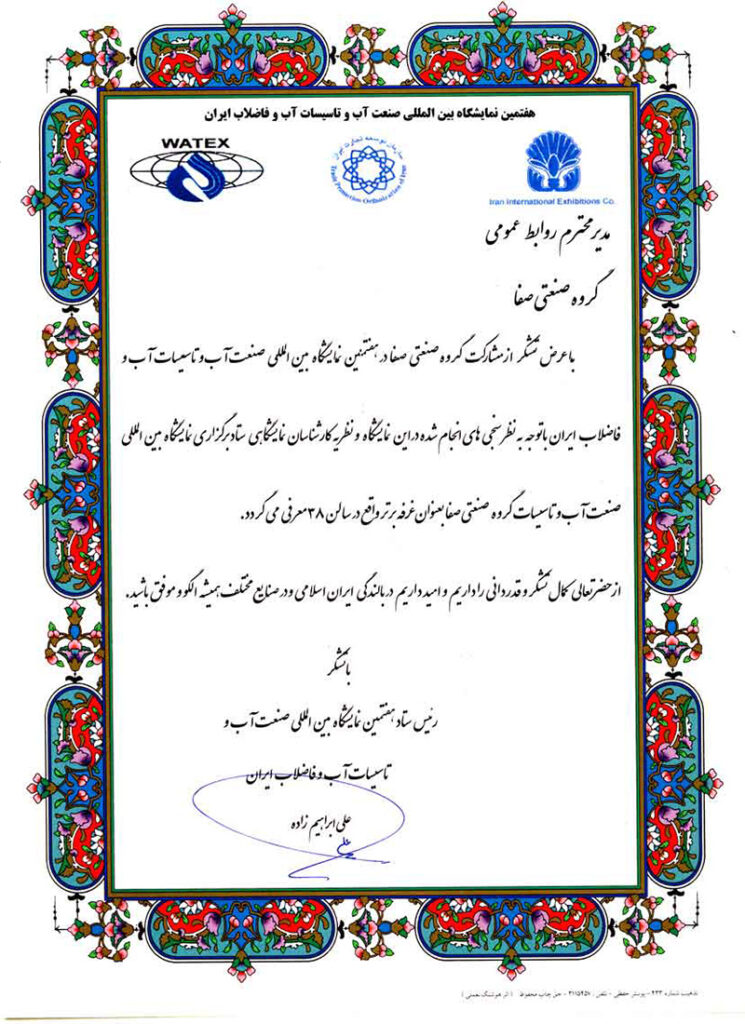 هفتمین نمایشگاه بین المللی صنعت آب و تاسیسات آب و فاضلاب ایران
WATEX
سازمان توسعه تجارت ایران
Iran International Exhibitions Co.
مدیر محترم روابط عمومی
گروه صنعتی صفا
با عرض تشکر از مشارکت گروه صنعتی صفا در هفتمین نمایشگاه بین المللی صنعت آب و تاسیسات آب و
فاضلاب ایران باتوجه به نظر سنجی های انجام شده در این نمایشگاه و نظریه کارشناسان نمایشگاهی ستاد برگزاری نمایشگاه بین المللی
صنعت آب و تاسیسات گروه صنعتی صفا بعنوان غرفه برتر واقع در سالن ۳۸ معرفی می گردد.
از حضرتعالی کمال تشکر و قدردانی را داریم و امید داریم در بالندگی ایران اسلامی ودر صنایع مختلف همیشه الگو و موفق باشید.
باتشکر
رئیس ستاد هفتمین نمایشگاه بین المللی صنعت آب و
تاسیسات آب و فاضلاب ایران
علی ابراهیم زاده